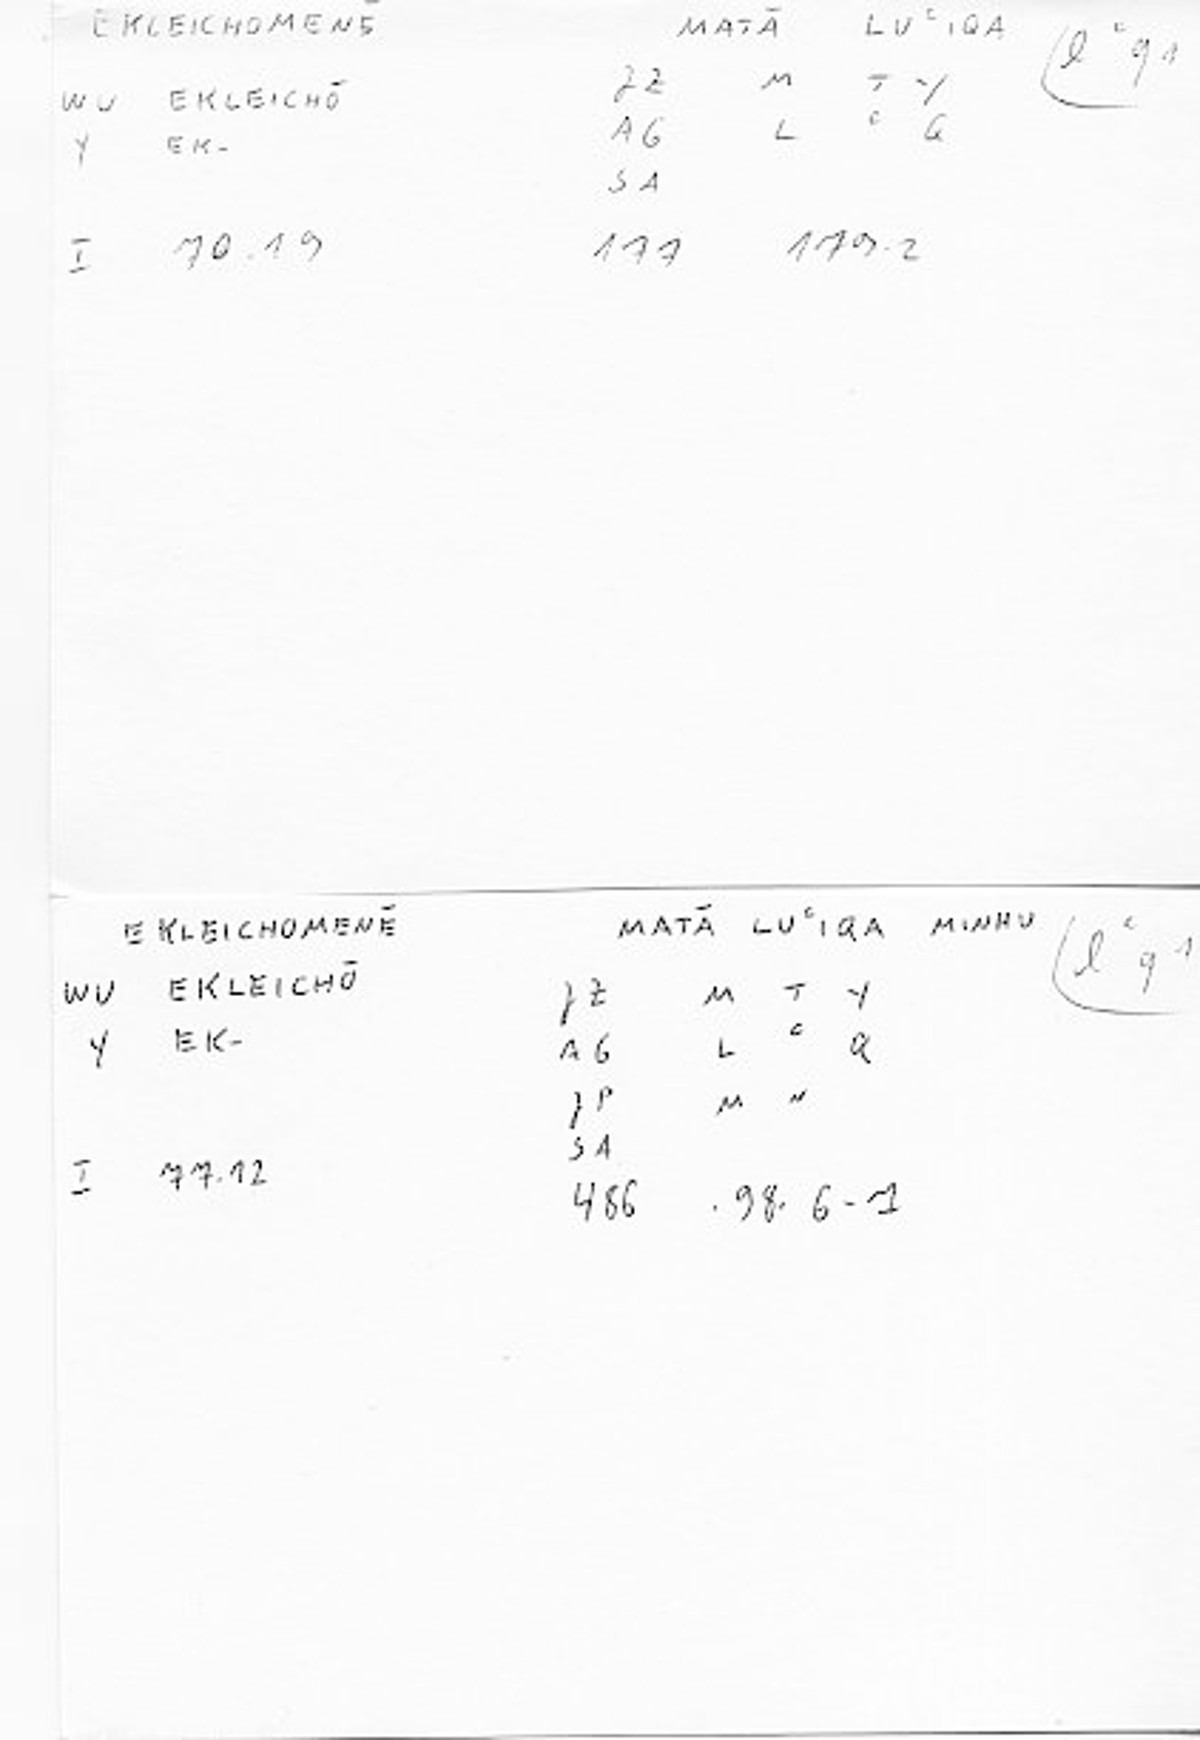 EKLEICHOMENĒ MATĀ LUʿIQA (lʿq1
WU EKLEICHŌ JZ M T Y
Y EK- AG L ʿ Q
SA
I 70.19 177 179.2
EKLEICHOMENĒ MATĀ LUʿIQA MINHU (lʿq1
WU EKLEICHŌ JZ M T Y
Y EK- AG L ʿ Q
JP M N
SA
I 77.12 486 .98. 6-1